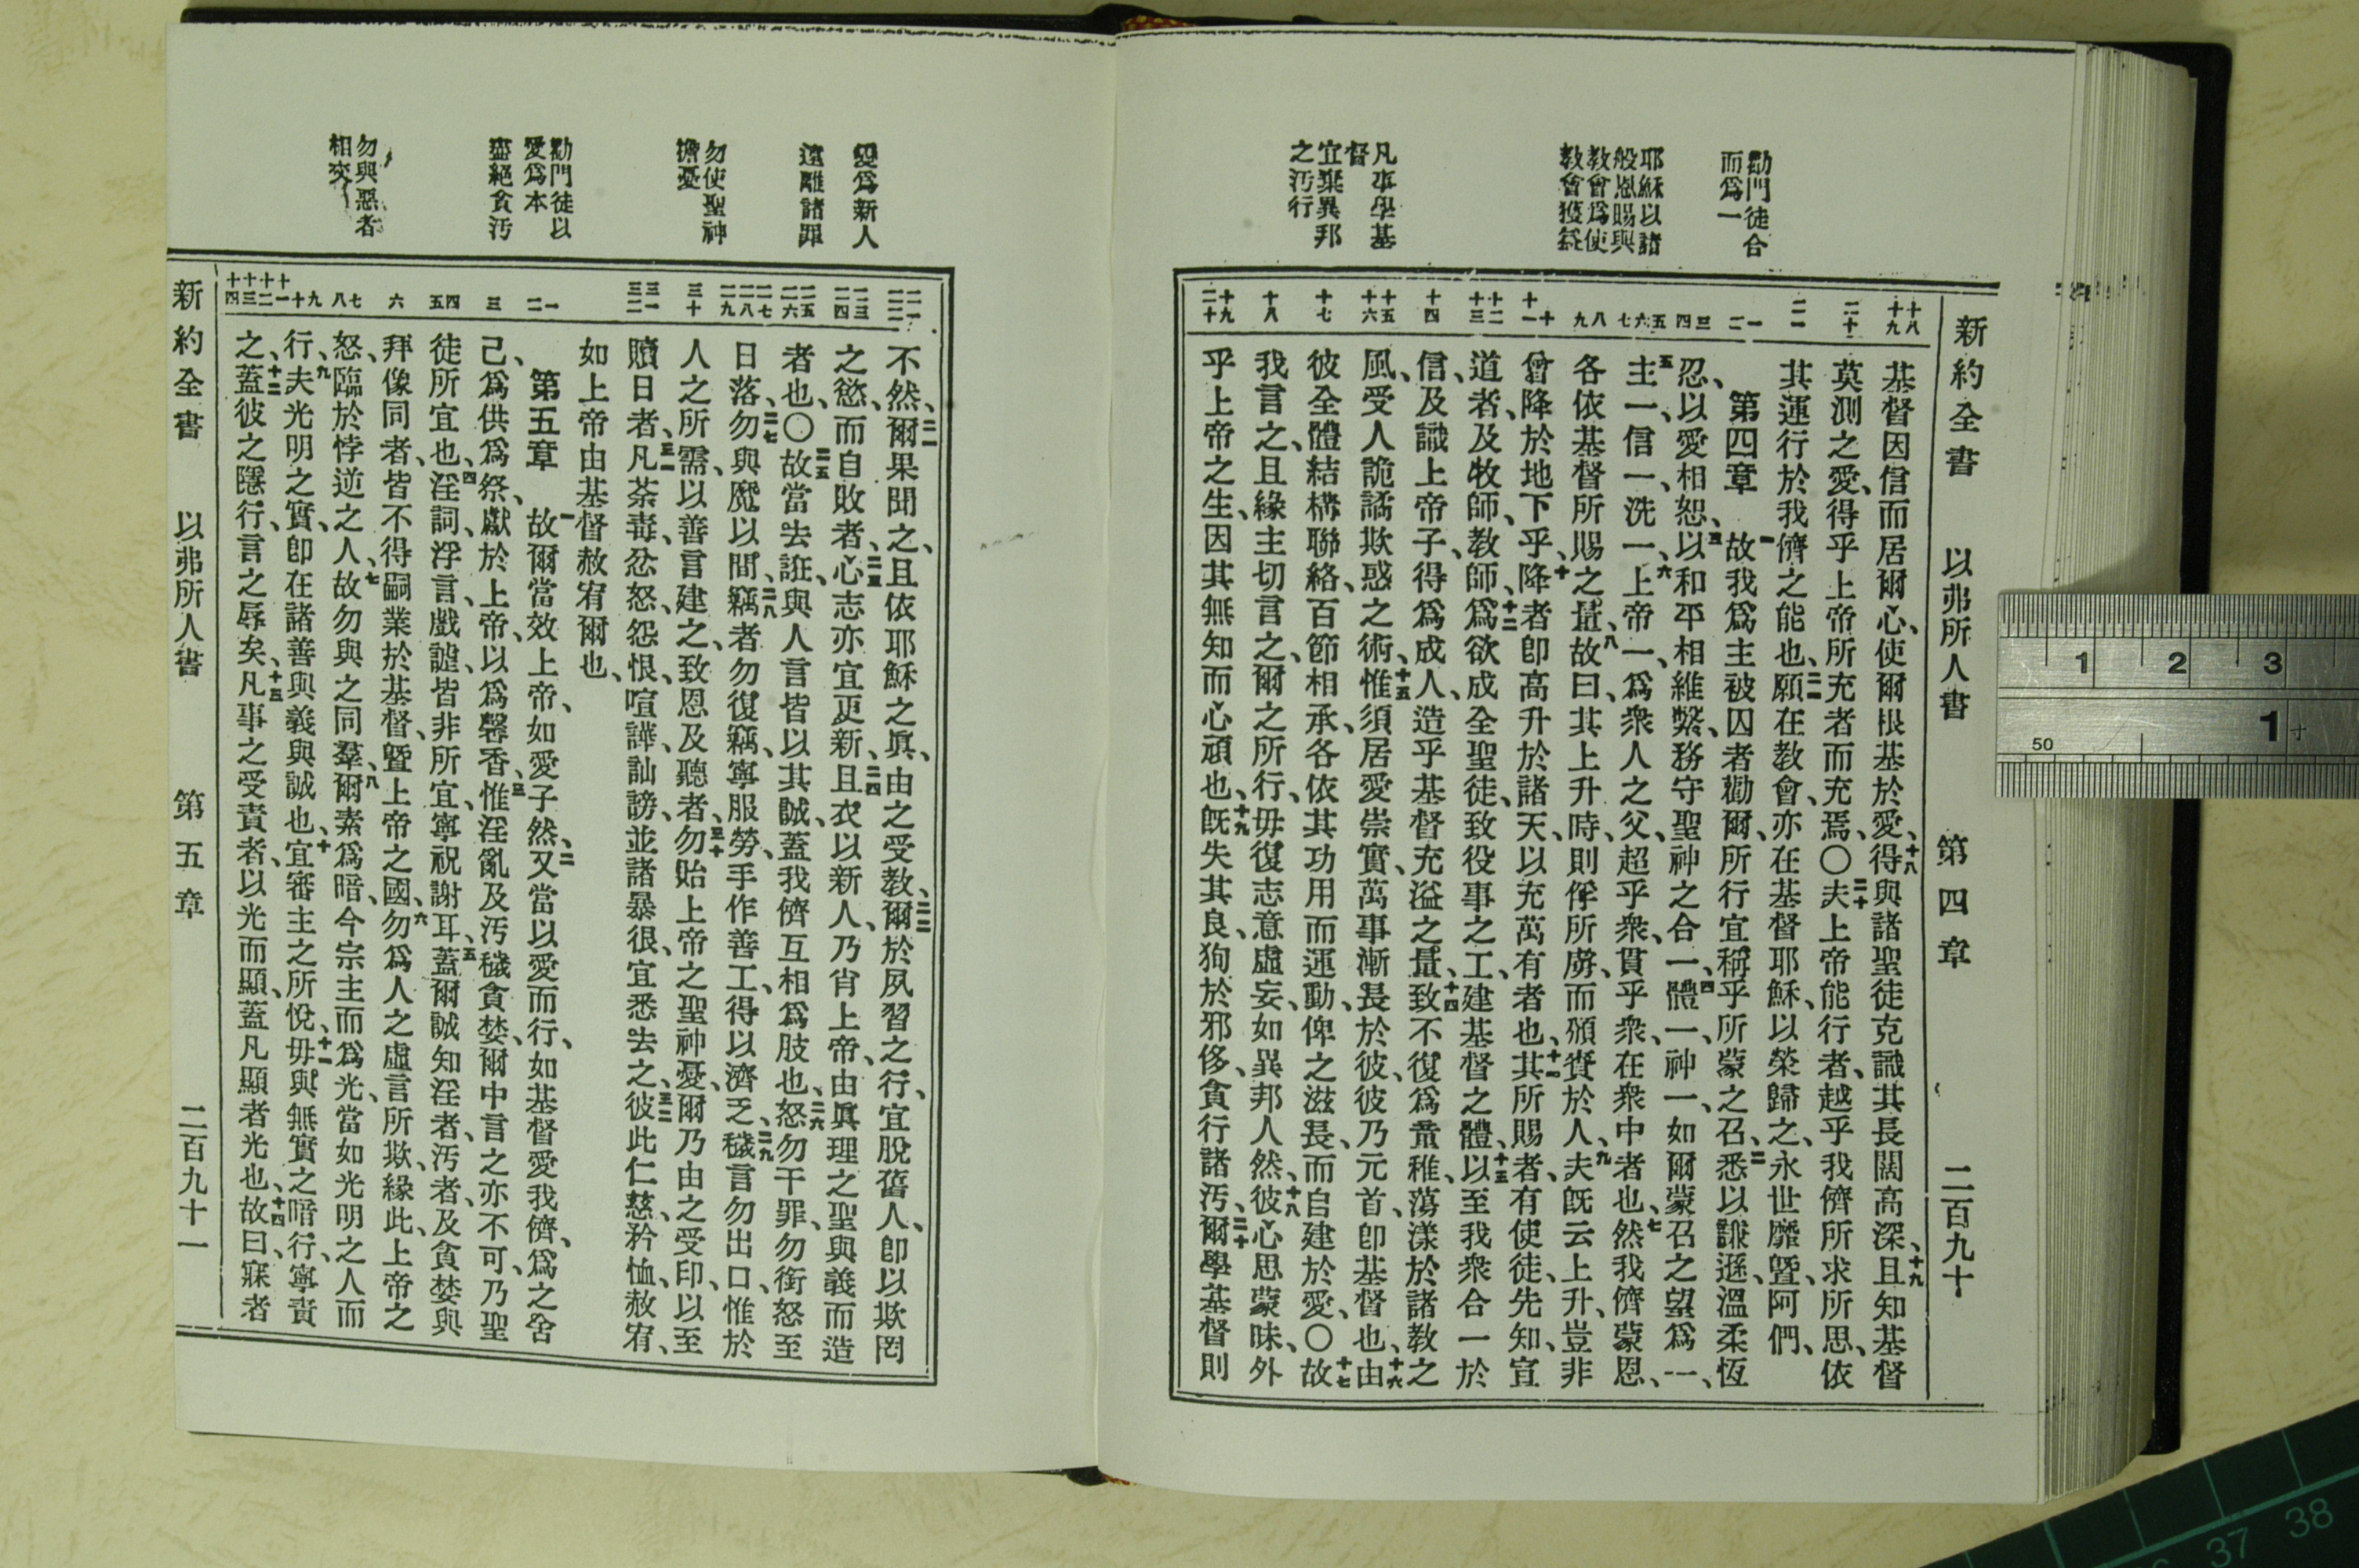 新約全書 以弗所人書 第四章 二百九十
勸門徒合
而爲一
耶穌以諸
般恩賜與
教會爲使
教會獲益
凡事學基
督
宜棄異邦
之汚行
十八
十九
二十
二一
一
二
三
四
五
六
七
八
九
十
十一
十二
十三
十四
十五
十六
十七
十八
十九
二十
基督因信而居爾心、使爾根基於愛、十八得與諸聖徒克識其長闊高深、十九且知基督
莫測之愛、得乎上帝所充者而充焉、〇二十夫上帝能行者、越乎我儕所求所思、依
其運行於我儕之能也、二一願在教會、亦在基督耶穌、以榮歸之、永世靡曁、阿們、
第四章 一故我爲主被囚者勸爾、所行宜稱乎所蒙之召、二悉以謙遜、溫柔恆
忍、以愛相恕、三以和平相維繫、務守聖神之合一、四體一、神一、如爾蒙召之望爲一、
五主一、信一、洗一、六上帝一、爲衆人之父、超乎衆、貫乎衆、在衆中者也、七然我儕蒙恩、
各依基督所賜之量、八故曰、其上升時、則俘所虜、而頒賚於人、九夫旣云上升、豈非
曾降於地下乎、十降者卽高升於諸天、以充萬有者也、十一其所賜者、有使徒、先知、宣
道者、及牧師、教師、十二爲欲成全聖徒、致役事之工、建基督之體、十三以至我衆合一於
信、及識上帝子、得爲成人、造乎基督充溢之量、十四致不復爲童稚、蕩漾於諸教之
風、受人詭譎欺惑之術、十五惟須居愛崇實、萬事漸長於彼、彼乃元首、卽基督也、十六由
彼全體結構聯絡、百節相承、各依其功用而運動、俾之滋長、而自建於愛、〇十七故
我言之、且緣主切言之、爾之所行、毋復志意虛妄、如異邦人然、十八彼心思蒙昧、外
乎上帝之生、因其無知而心頑也、十九旣失其良、狥於邪侈、貪行諸汚、二十爾學基督則
愛爲新人
遠離諸罪
勿使聖神
擔憂
勸門徒以
愛爲本
盡絕貪汚
勿與惡者
相交
二一
二二
二三
二四
二五
二六
二七
二八
二九
三十
三一
三二
一
二
三
四
五
六
七
八
九
十
十一
十二
十三
十四
不然、二一爾果聞之、且依耶穌之眞、由之受教、二二爾於夙習之行、宜脫舊人、卽以欺罔
之慾而自敗者、二三心志亦宜更新、二四且衣以新人、乃肖上帝、由眞理之聖與義而造
者也、〇二五故當去誑、與人言皆以其誠、蓋我儕互相爲肢也、二六怒勿干罪、勿銜怒至
日落、二七勿與魔以間、二八竊者勿復竊、寧服勞、手作善工、得以濟乏、二九穢言勿出口、惟於
人之所需、以善言建之、致恩及聽者、三十勿貽上帝之聖神憂、爾乃由之受印、以至
贖日者、三一凡荼毒、忿怒、怨恨、喧譁、訕謗、並諸暴很、宜悉去之、三二彼此仁慈、矜恤、赦宥、
如上帝由基督赦宥爾也、
第五章 一故爾當效上帝、如愛子然、二又當以愛而行、如基督愛我儕、爲之舍
己、爲供爲祭、獻於上帝、以爲馨香、三惟淫亂及汚穢貪婪、爾中言之亦不可、乃聖
徒所宜也、四淫詞、浮言、戲謔、皆非所宜、寧祝謝耳、五蓋爾誠知淫者、汚者、及貪婪與
拜像同者、皆不得嗣業於基督、曁上帝之國、六勿爲人之虛言所欺、緣此、上帝之
怒、臨於悖逆之人、七故勿與之同羣、八爾素爲暗、今宗主而爲光、當如光明之人而
行、九夫光明之實、卽在諸善與義與誠也、十宜審主之所悅、十一毋與無實之暗行、寧責
之、十二蓋彼之隱行、言之辱矣、十三凡事之受責者、以光而顯、蓋凡顯者光也、十四故曰、寐者
新約全書 以弗所人書 第五章 二百九十一
1 2 3
50 1
37 38